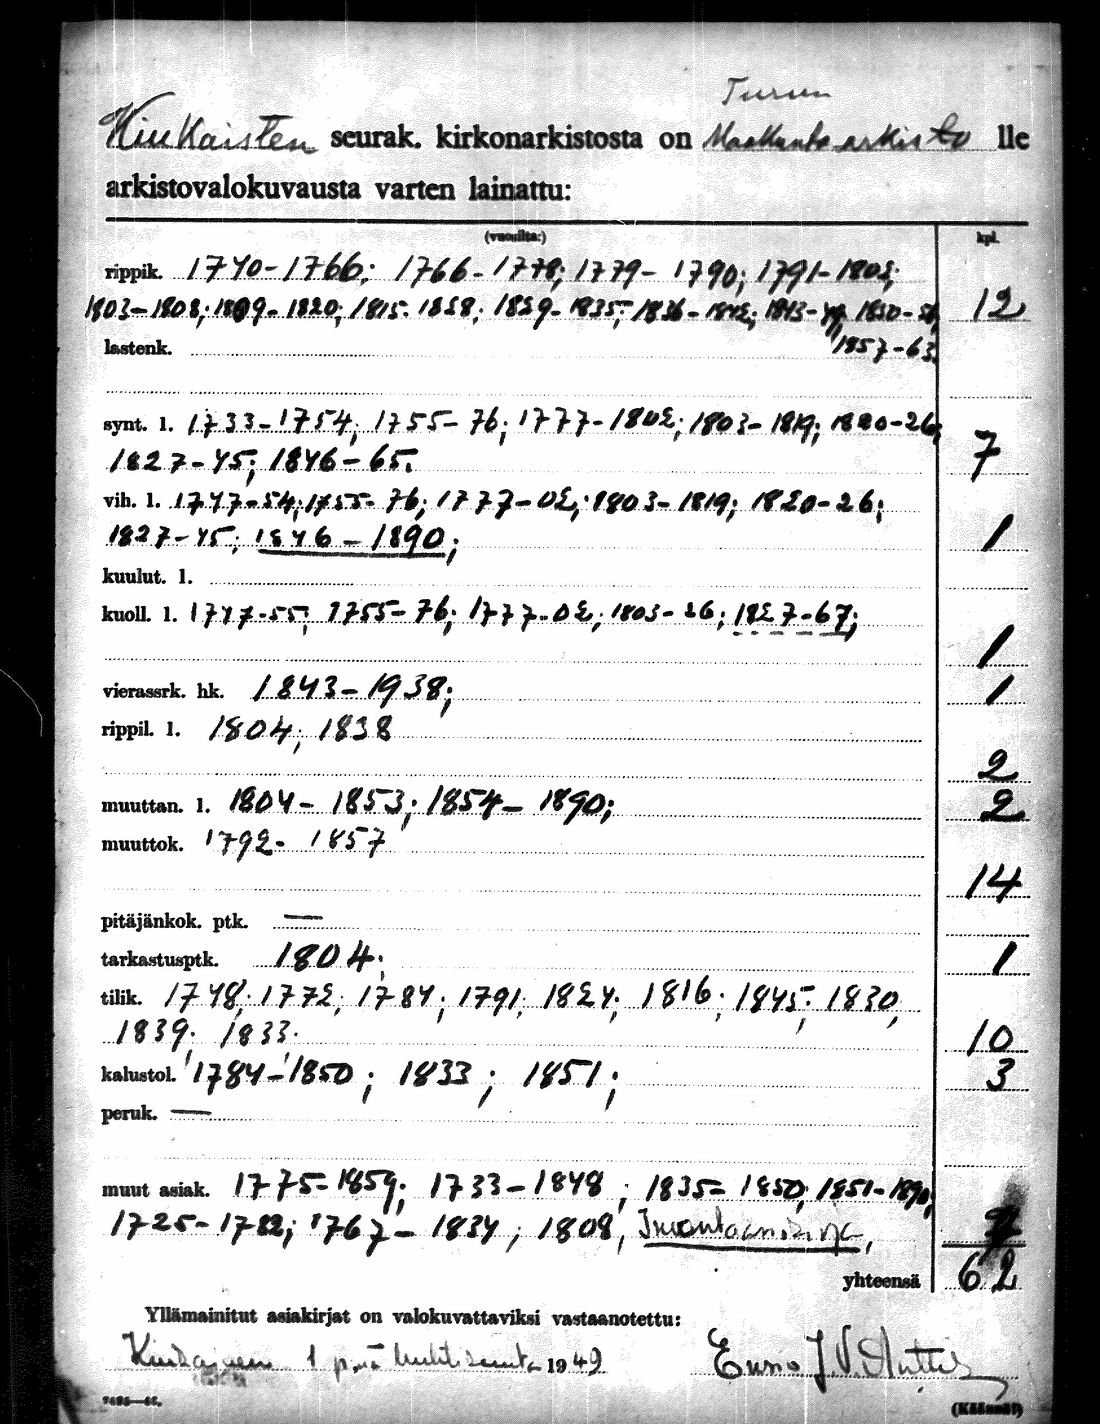 Turun
Kiukaisten seurak. kirkonarkistosta on Maakunta-arkisto lle
arkistovalokuvausta varten lainattu:
(vuosilta:) kpl.
rippik. 1740-1766; 1766-1778; 1779-1790; 1791-1802;
1803-1808; 1809-1820; 1815-1828; 1829-1835; 1836-1842; 1843-49; 1850-56; 12
lastenk. 1857-63.
synt. l. 1733-1754; 1755-76; 1777-1802; 1803-1819; 1820-26;
1827-45; 1846-65. 7
vih. l. 1747-54; 1755-76; 1777-02; 1803-1819; 1820-26;
1827-45; 1846-1890; 1
kuulut. l.
kuoll. l. 1747-55; 1755-76; 1777-02; 1803-26; 1827-67;
1
vierassrk. hk. 1843-1938; 1
rippil. l. 1804; 1838
2
muuttan. l. 1804-1853; 1854-1890; 2
muuttok. 1792-1857
14
pitäjänkok. ptk. —
tarkastusptk. 1804; 1
tilik. 1748; 1772; 1784; 1791; 1824; 1816; 1845; 1830,
1839; 1833. 10
kalustol. 1784-1850; 1833; 1851; 3
peruk. —
muut asiak. 1775-1859; 1733-1848; 1835-1850; 1851-1890;
1725-1782; 1767-1834; 1808,
yhteensä 62
Yllämainitut asiakirjat on valokuvattaviksi vastaanotettu:
Kiukainen 1 p:nä huhtikuuta 1949 Eino J.V. Anttila
(Käännä!)